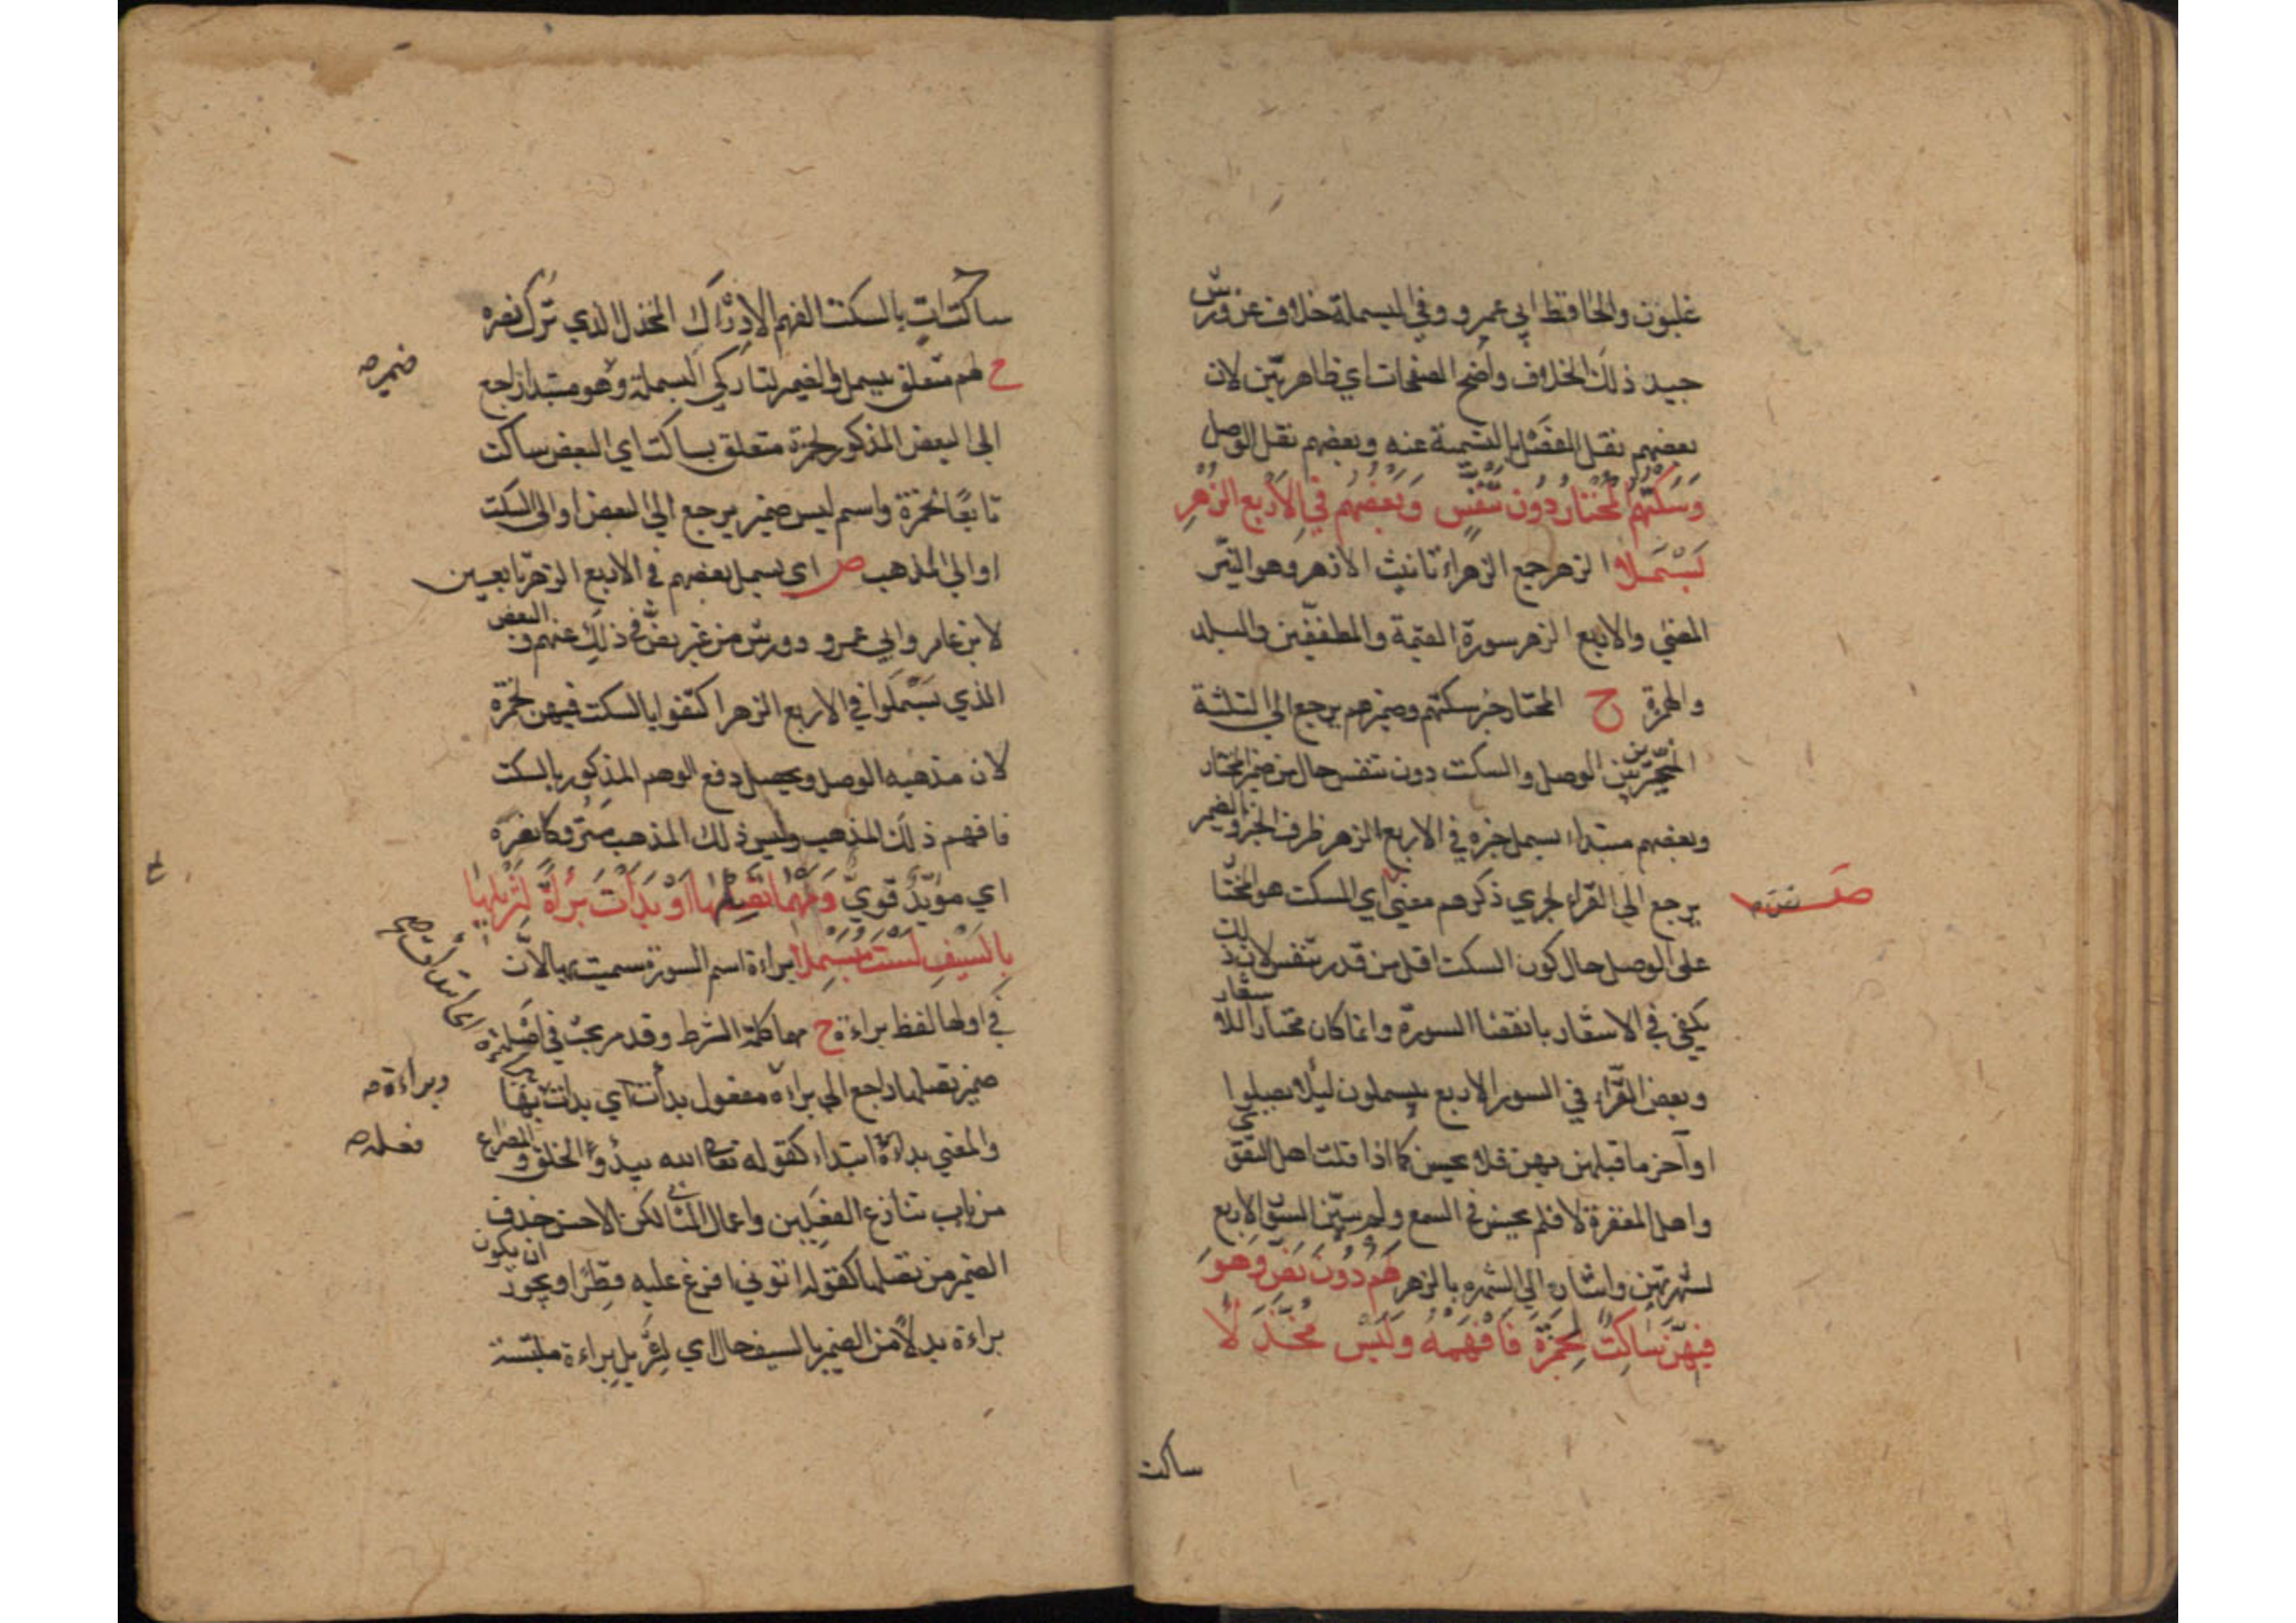 غلبون والحافظ ابي عمرو وفي البسملة خلاف عن ورش
جيد ذلك الخلاف واضح الصفحات اي ظاهر بيّن لان
بعضهم نقل الفصل بالتسمية عنه وبعضهم نقل الوصل
وَسَكْتُهُم المُختار دُون تَنَفُّسٍ وَبَعْضُهُم في الاَرْبع الزُهرِ
بَسْمَلا الزهر جمع الزهراء تانيث الازهر وهو النيّر
المضئ والاربع الزهر سورة القيمة والمطففين والبلد
والهمزة ح المختار خبر سكتهم وضميرهم يرجع الى الثلثة
المخيّرين بين الوصل والسكت دون تنفس حال من ضمير المختار
وبعضهم مبتدا بسمل خبره في الاربع الزهر ظرف الخبر والضمير
يرجع الى القراء لجري ذكرهم معنى اي السكت هو المختا
على الوصل حال كون السكت اقل من قدر تنفس لان ذلك
يكفي في الاشعار بانقضا السورة وانما كان مختارا
وبعض القراء في السور الاربع يبسملون ليلا يصلوا
اواخر ما قبلهن بهن فلا يحسن كما اذا قلت اهل التقوى
واهل المغفرة لا فلم يحسن في السمع ولم يبيّن السور الاربع
لشهرتهن واشار الى الشهره بالزهر لهُم دُونَ نَصٍّ وَهوَ
فيهِنّ سَاكِتٌ لِحَمْزَةَ فَافْهَمْهُ وَلَيْسَ مُخَذَّلًا
ساكت
ساكتات بالسكت الفهم الادراك المخذل الذي ترك نصره
ح لهم متعلق ببسمل والضمير لتاركي البسملة وهو مبتدا راجع
ضمير صح
الى البعض المذكور لحمزة متعلق بساكت اي البعض ساكت
تابعًا لحمزة واسم ليس ضمير يرجع الى البعض او الى السكت
او الى المذهب ص اي بسمل بعضهم في الاربع الزهر تابعين
لابن عامر وابي عمرو وورش من غير نصّ في ذلك عنهم و البعض
الذي بسملوا في الاربع الزهر اكتفوا بالسكت فيهن لحمزة
لان مذهبه الوصل ويحصل دفع الوهم المذكور بالسكت
فافهم ذلك المذهب وليس ذلك المذهب متروكا نصره
اي مؤيّد قويّ وَمَهْمَا تَصِلْهَا اَوْ بَدَأْتَ بَرَاءَةً لِتَنْزِيلِهَا
بِالسَّيفِ لَسْتَ مُبَسْمِلا براءة اسم السورة سميت بها لانّ
في اولها لفظ براءة ح مهما كلمة الشرط وقد مر بحث في اصليته
ضمير تصلها راجع الى براءة مفعول بدأت اي بدات بها
وبراءة صح
والمعنى بداءة ابتداء كقوله تعالى الله يبدؤ الخلق و المصراع
من باب تنازع الفعلين واعمال الثاني لكن الاحسن حذف
الضمير من تصلها كقوله اتوني افرغ عليه قطرا ويجوز ان يكون
براءة بدلا من الضمير بالسيف حال اي لتنزيل براءة ملتبسة